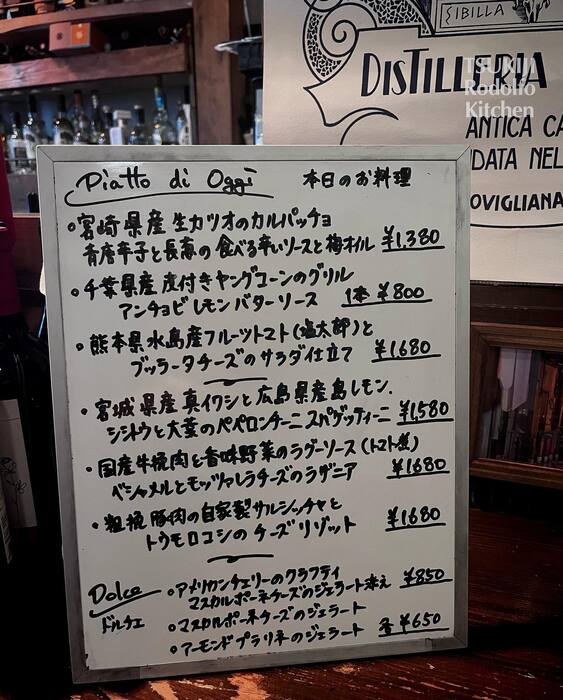 SIBILLA
DISTILLERIA
TSUKIJI
Rodolfo
Kitchen
ANTICA CA
DATA NEL
OVIGLIANA
Piatto di Oggi 本日のお料理
・宮崎県産 生カツオのカルパッチョ
青唐辛子と長葱の食べる辛いソースと梅オイル ¥1,380
・千葉県産 皮付きヤングコーンのグリル
アンチョビレモンバターソース 1本 ¥800
・熊本県水島産フルーツトマト(塩太郎)と
ブッラータチーズのサラダ仕立て ¥1680
・宮城県産真イワシと広島県産島レモン、
シシトウと大葉のペペロンチーニ スパゲッティーニ ¥1,580
・国産牛挽肉と香味野菜のラグーソース(トマト抜)
ベシャメルとモッツァレラチーズのラザニア ¥1680
・粗挽豚肉の自家製サルシッチャと
トウモロコシのチーズリゾット ¥1680
Dolce
ドルチェ
・アメリカンチェリーのクラフティ
マスカルポーネチーズのジェラート添え ¥850
・マスカルポーネチーズのジェラート
・アーモンドプラリネのジェラート 各 ¥650